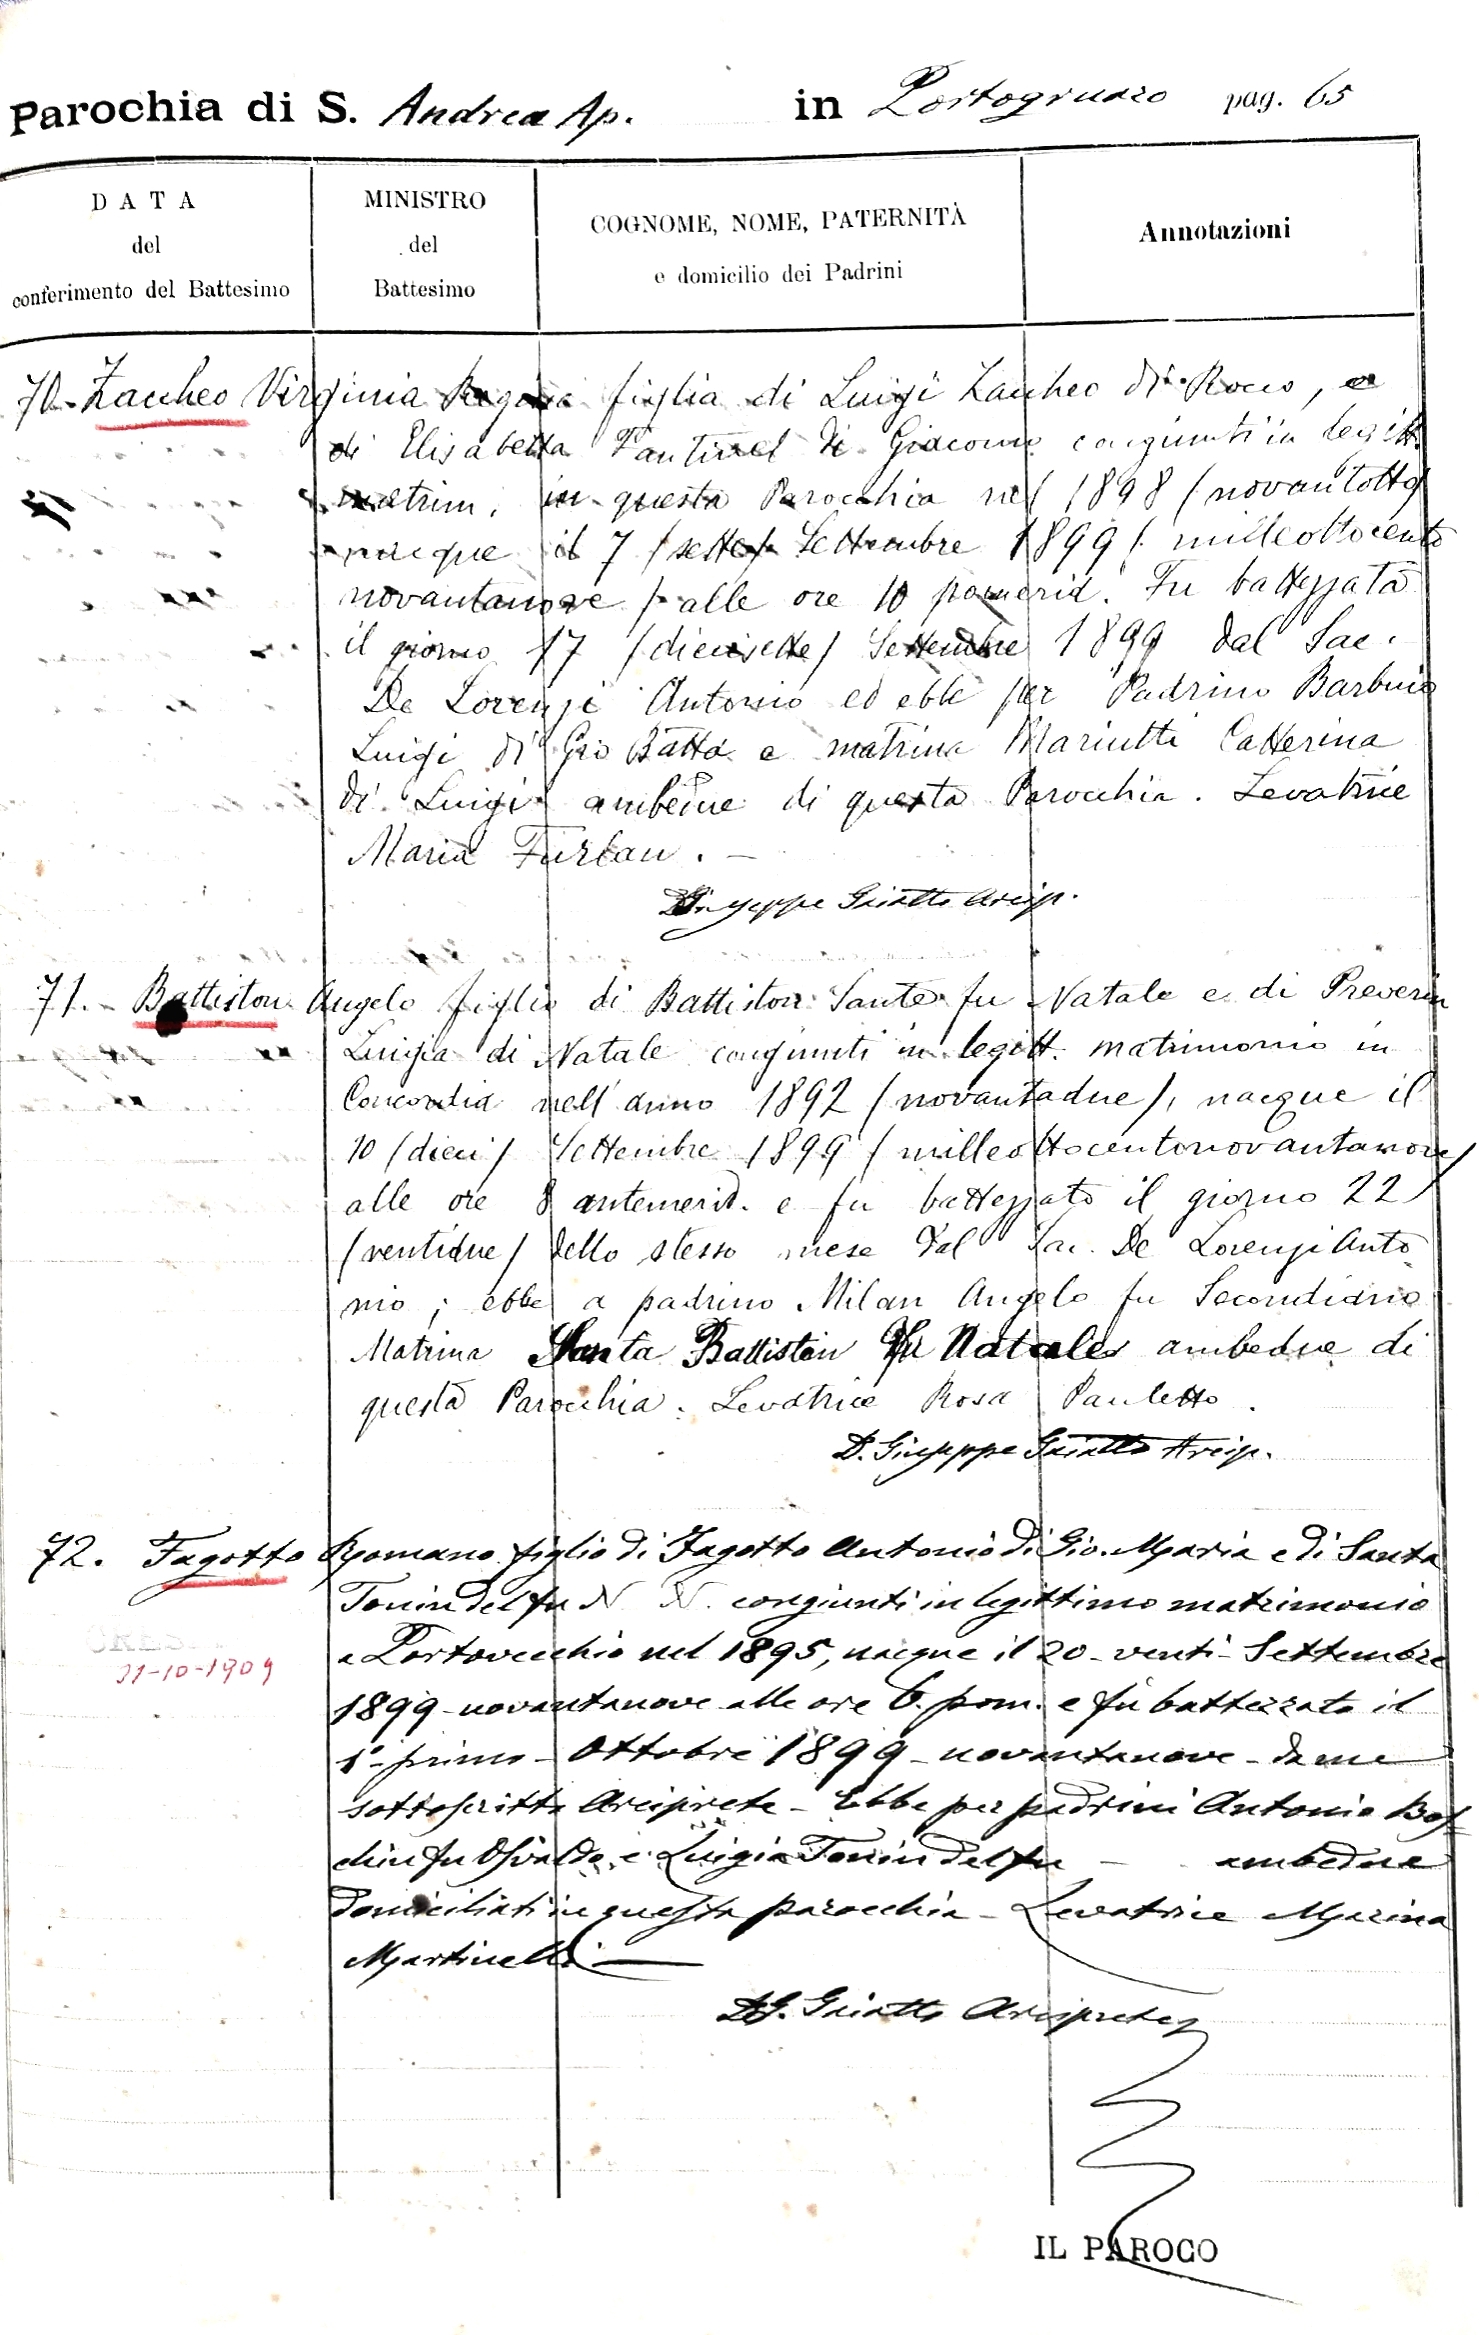 Parochia di S. Andrea Ap. in Portogruaro pag. 65
DATA
del
conferimento del Battesimo
MINISTRO
del
Battesimo
COGNOME, NOME, PATERNITÀ
e domicilio dei Padrini
Annotazioni
70.- Zaccheo Virginia Regina figlia di Luigi Zaccheo di Rocco, e
di Elisabetta di Giacomo congiunti in legitt.
matrim. in questa Parocchia nel 1898 (novantotto)
nacque il 7 (sette) Settembre 1899 (milleottocento
novantanove) alle ore 10 pomerid. Fu battezzata
il giorno 17 (diecisette) Settembre 1899 dal Sac.
De Lorenzi Antonio ed ebbe per Padrino Barbuio
Luigi di Gio Batta e matrina Mariutti Catterina
di Luigi ambedue di questa Parocchia. Levatrice
Maria Furlan. -
D. Giuseppe Gaiatto Arcip.
71.- Battiston Angelo figlio di Battiston Sante fu Natale e di Preverin
Luigia di Natale congiunti in legitt. matrimonio in
Concordia nell'anno 1892 (novantadue), nacque il
10 (dieci) Settembre 1899 (milleottocentonovantanove)
alle ore 8 antemerid. e fu battezzato il giorno 22
(ventidue) dello stesso mese dal Sac. De Lorenzi Anto
nio; ebbe a padrino Milan Angelo fu Secondiano
Matrina Santa Battiston fu Natale ambedue di
questa Parocchia. Levatrice Rosa Pauletto.
D. Giuseppe Gaiatto Arcip.
72. Fagotto Romano figlio di Fagotto Antonio di Gio. Maria e di Santa
Tonin del fu N N. congiunti in legittimo matrimonio
a Portovecchio nel 1895, nacque il 20 - venti - Settembre
1899 - novantanove alle ore 6. pom. e fu battezzato il
1° - primo - Ottobre 1899 - novantanove - da me
31-10-1909
sottoscritto Arciprete - Ebbe per padrini Antonio Bos-
chin fu Osvaldo e Luigia Tonin del fu - ambedue
domiciliati in questa parocchia - Levatrice Marina
Martinelli
D. G. Gaiatto Arciprete
IL PAROCO